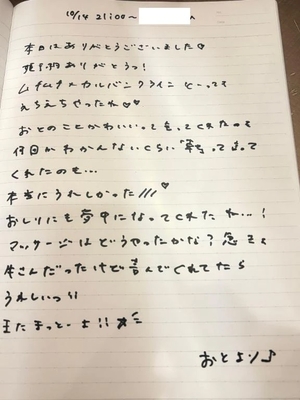 10/14 21:00～
本日はありがとうございました♡
ありがとうっ!
ムチムチ×カルバンクライン とーっても
えちえちやったね♡♡
おとのことかわいいって言ってくれたのも
何回かわかんないくらい 言ってくれたのも…
本当にうれしかった///♡
おしりにも夢中になってくれた ね…!
マッサージはどうやったかな?
さんだったけど喜んでくれてたら
うれしいっ!!
またまっとーよ!!
おとより♪